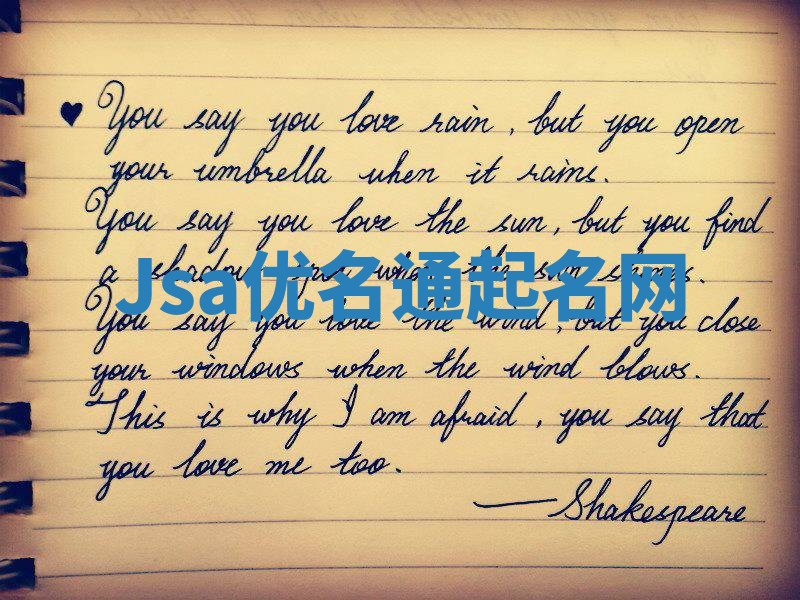 ♥ You say you love rain, but you open
your umbrella when it rains.
You say you love the sun, but you find
a shadow spot when the sun shines.
Jsa优名通起名网
You say you love the wind, but you close
your windows when the wind blows.
This is why I am afraid, you say that
you love me too.
—Shakespeare